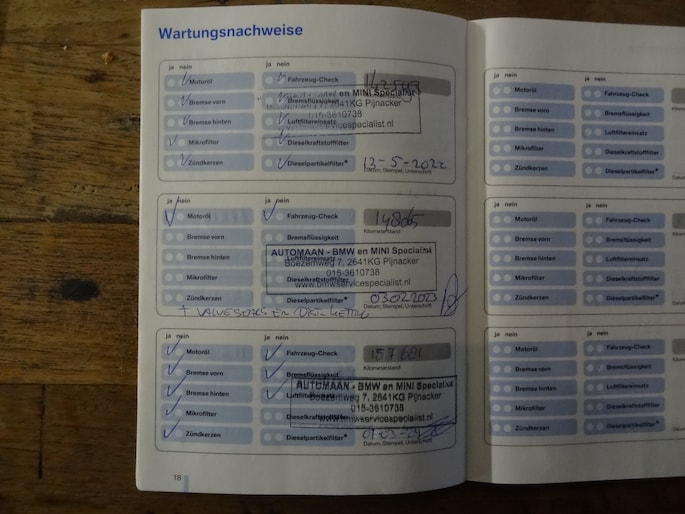 Wartungsnachweise
ja nein
Motoröl Fahrzeug-Check
Bremse vorn Bremsflüssigkeit
en MINI Specialist
2641KG Pijnacker
015-3610738
servicespecialist.nl
Bremse hinten Luftfiltereinsatz
Mikrofilter Dieselkraftstofffilter
Zündkerzen Dieselpartikelfilter*
13-5-2022
Datum, Stempel, Unterschrift
ja nein
Motoröl Fahrzeug-Check
Kilometerstand
Bremse vorn Bremsflüssigkeit
AUTOMAAN - BMW en MINI Specialist
Boezemweg 7, 2641KG Pijnacker
015-3610738
www.bmwservicespecialist.nl
Bremse hinten Luftfiltereinsatz
Mikrofilter Dieselkraftstofffilter
Zündkerzen Dieselpartikelfilter*
03.02.2023
Datum, Stempel, Unterschrift
ja nein
Motoröl Fahrzeug-Check
157 681
Kilometerstand
Bremse vorn Bremsflüssigkeit
AUTOMAAN - BMW en MINI Specialist
Boezemweg 7, 2641KG Pijnacker
015-3610738
www.bmwservicespecialist.nl
Bremse hinten Luftfiltereinsatz
Mikrofilter Dieselkraftstofffilter
Zündkerzen Dieselpartikelfilter*
Datum, Stempel, Unterschrift
18
ja nein
Motoröl Fahrzeug-Check
Bremse vorn Bremsflüssigkeit
Bremse hinten Luftfiltereinsatz
Mikrofilter Dieselkraftstofffilter
Zündkerzen Dieselpartikelfilter*
ja nein
Motoröl Fahrzeug-Check
Bremse vorn Bremsflüssigkeit
Bremse hinten Luftfiltereinsatz
Mikrofilter Dieselkraftstofffilter
Zündkerzen Dieselpartikelfilter*
ja nein
Motoröl Fahrzeug-Check
Bremse vorn Bremsflüssigkeit
Bremse hinten Luftfiltereinsatz
Mikrofilter Dieselkraftstofffilter
Zündkerzen Dieselpartikelfilter*